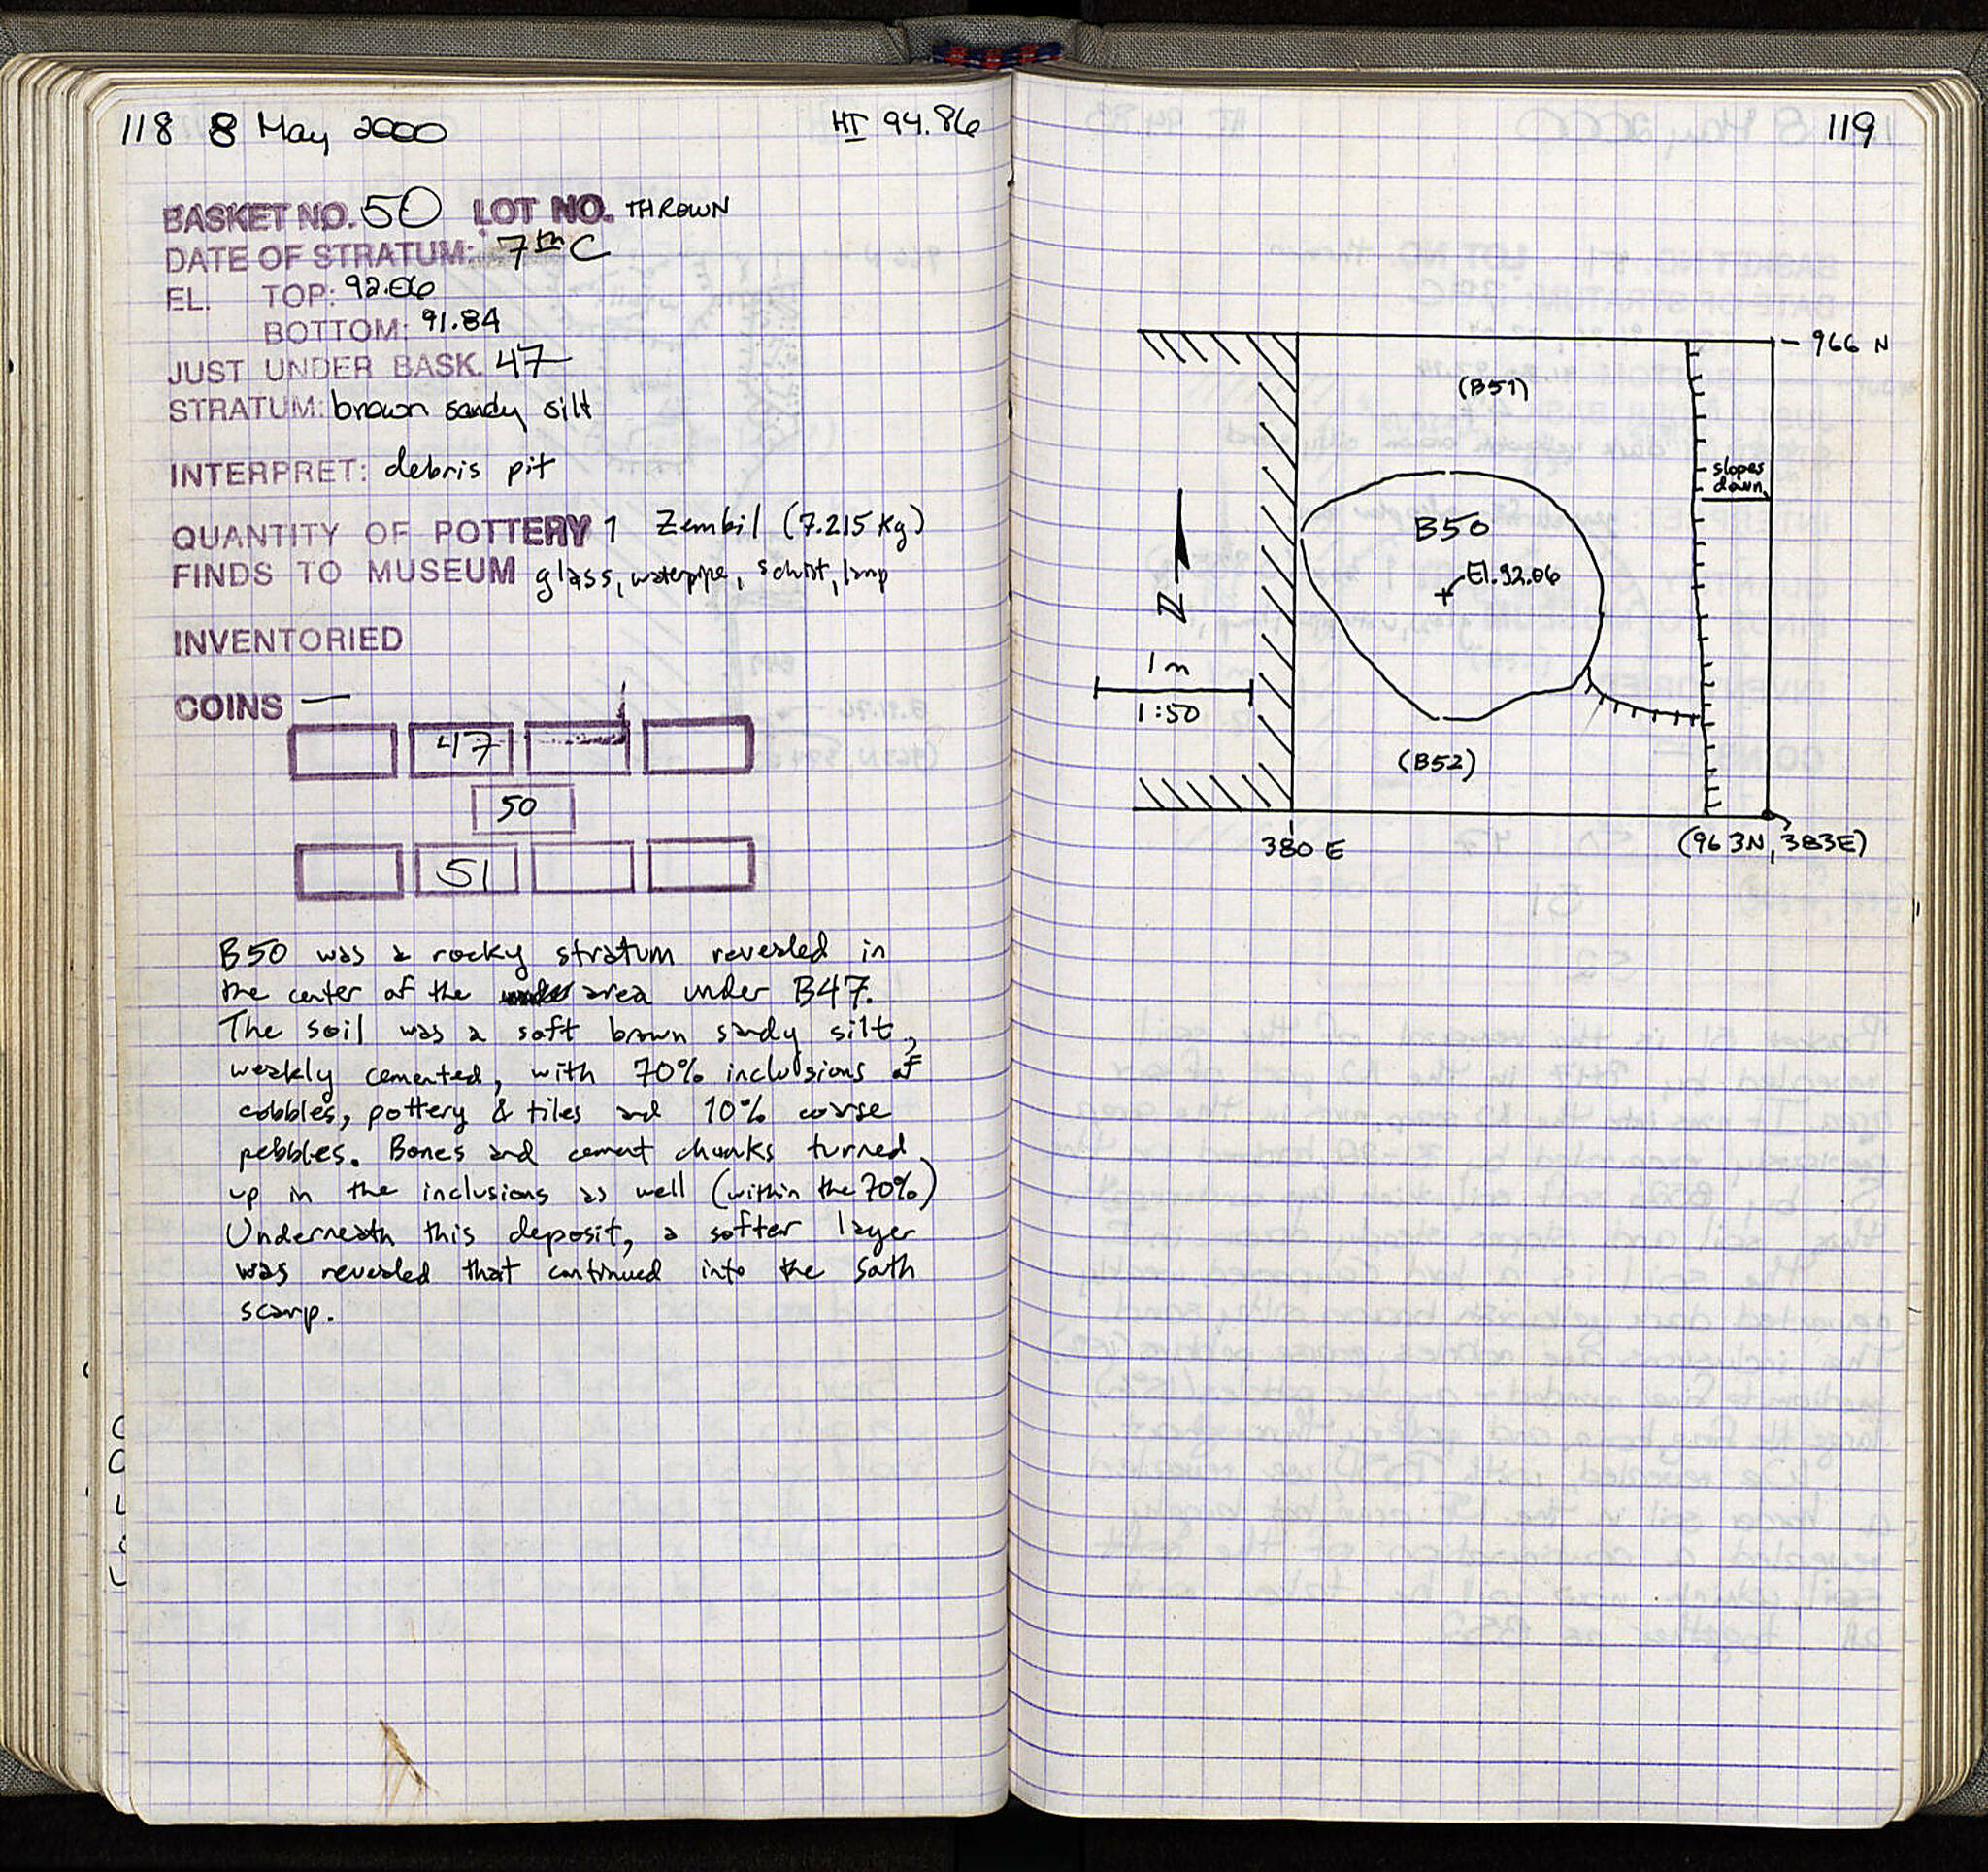 118 8 May 2000 HI 94.86
BASKET NO. 50 LOT NO. THROWN
DATE OF STRATUM: 7th C
EL. TOP: 92.06
BOTTOM: 91.84
JUST UNDER BASK. 47
STRATUM: brown sandy silt
INTERPRET: debris pit
QUANTITY OF POTTERY 1 Zembil (7.215 Kg)
FINDS TO MUSEUM glass, waterpipe, schist, lamp
INVENTORIED
COINS —
47
50
51
B50 was a rocky stratum revealed in
the center of the area under B47.
The soil was a soft brown sandy silt,
weakly cemented, with 70% inclusions of
cobbles, pottery & tiles and 10% coarse
pebbles. Bones and cement chunks turned
up in the inclusions as well (within the 70%)
Underneath this deposit, a softer layer
was revealed that continued into the south
scarp.
119
966 N
(B51)
slopes
down
B50
El. 92.06
N
1m
1:50
(B52)
380 E
(963N, 383E)